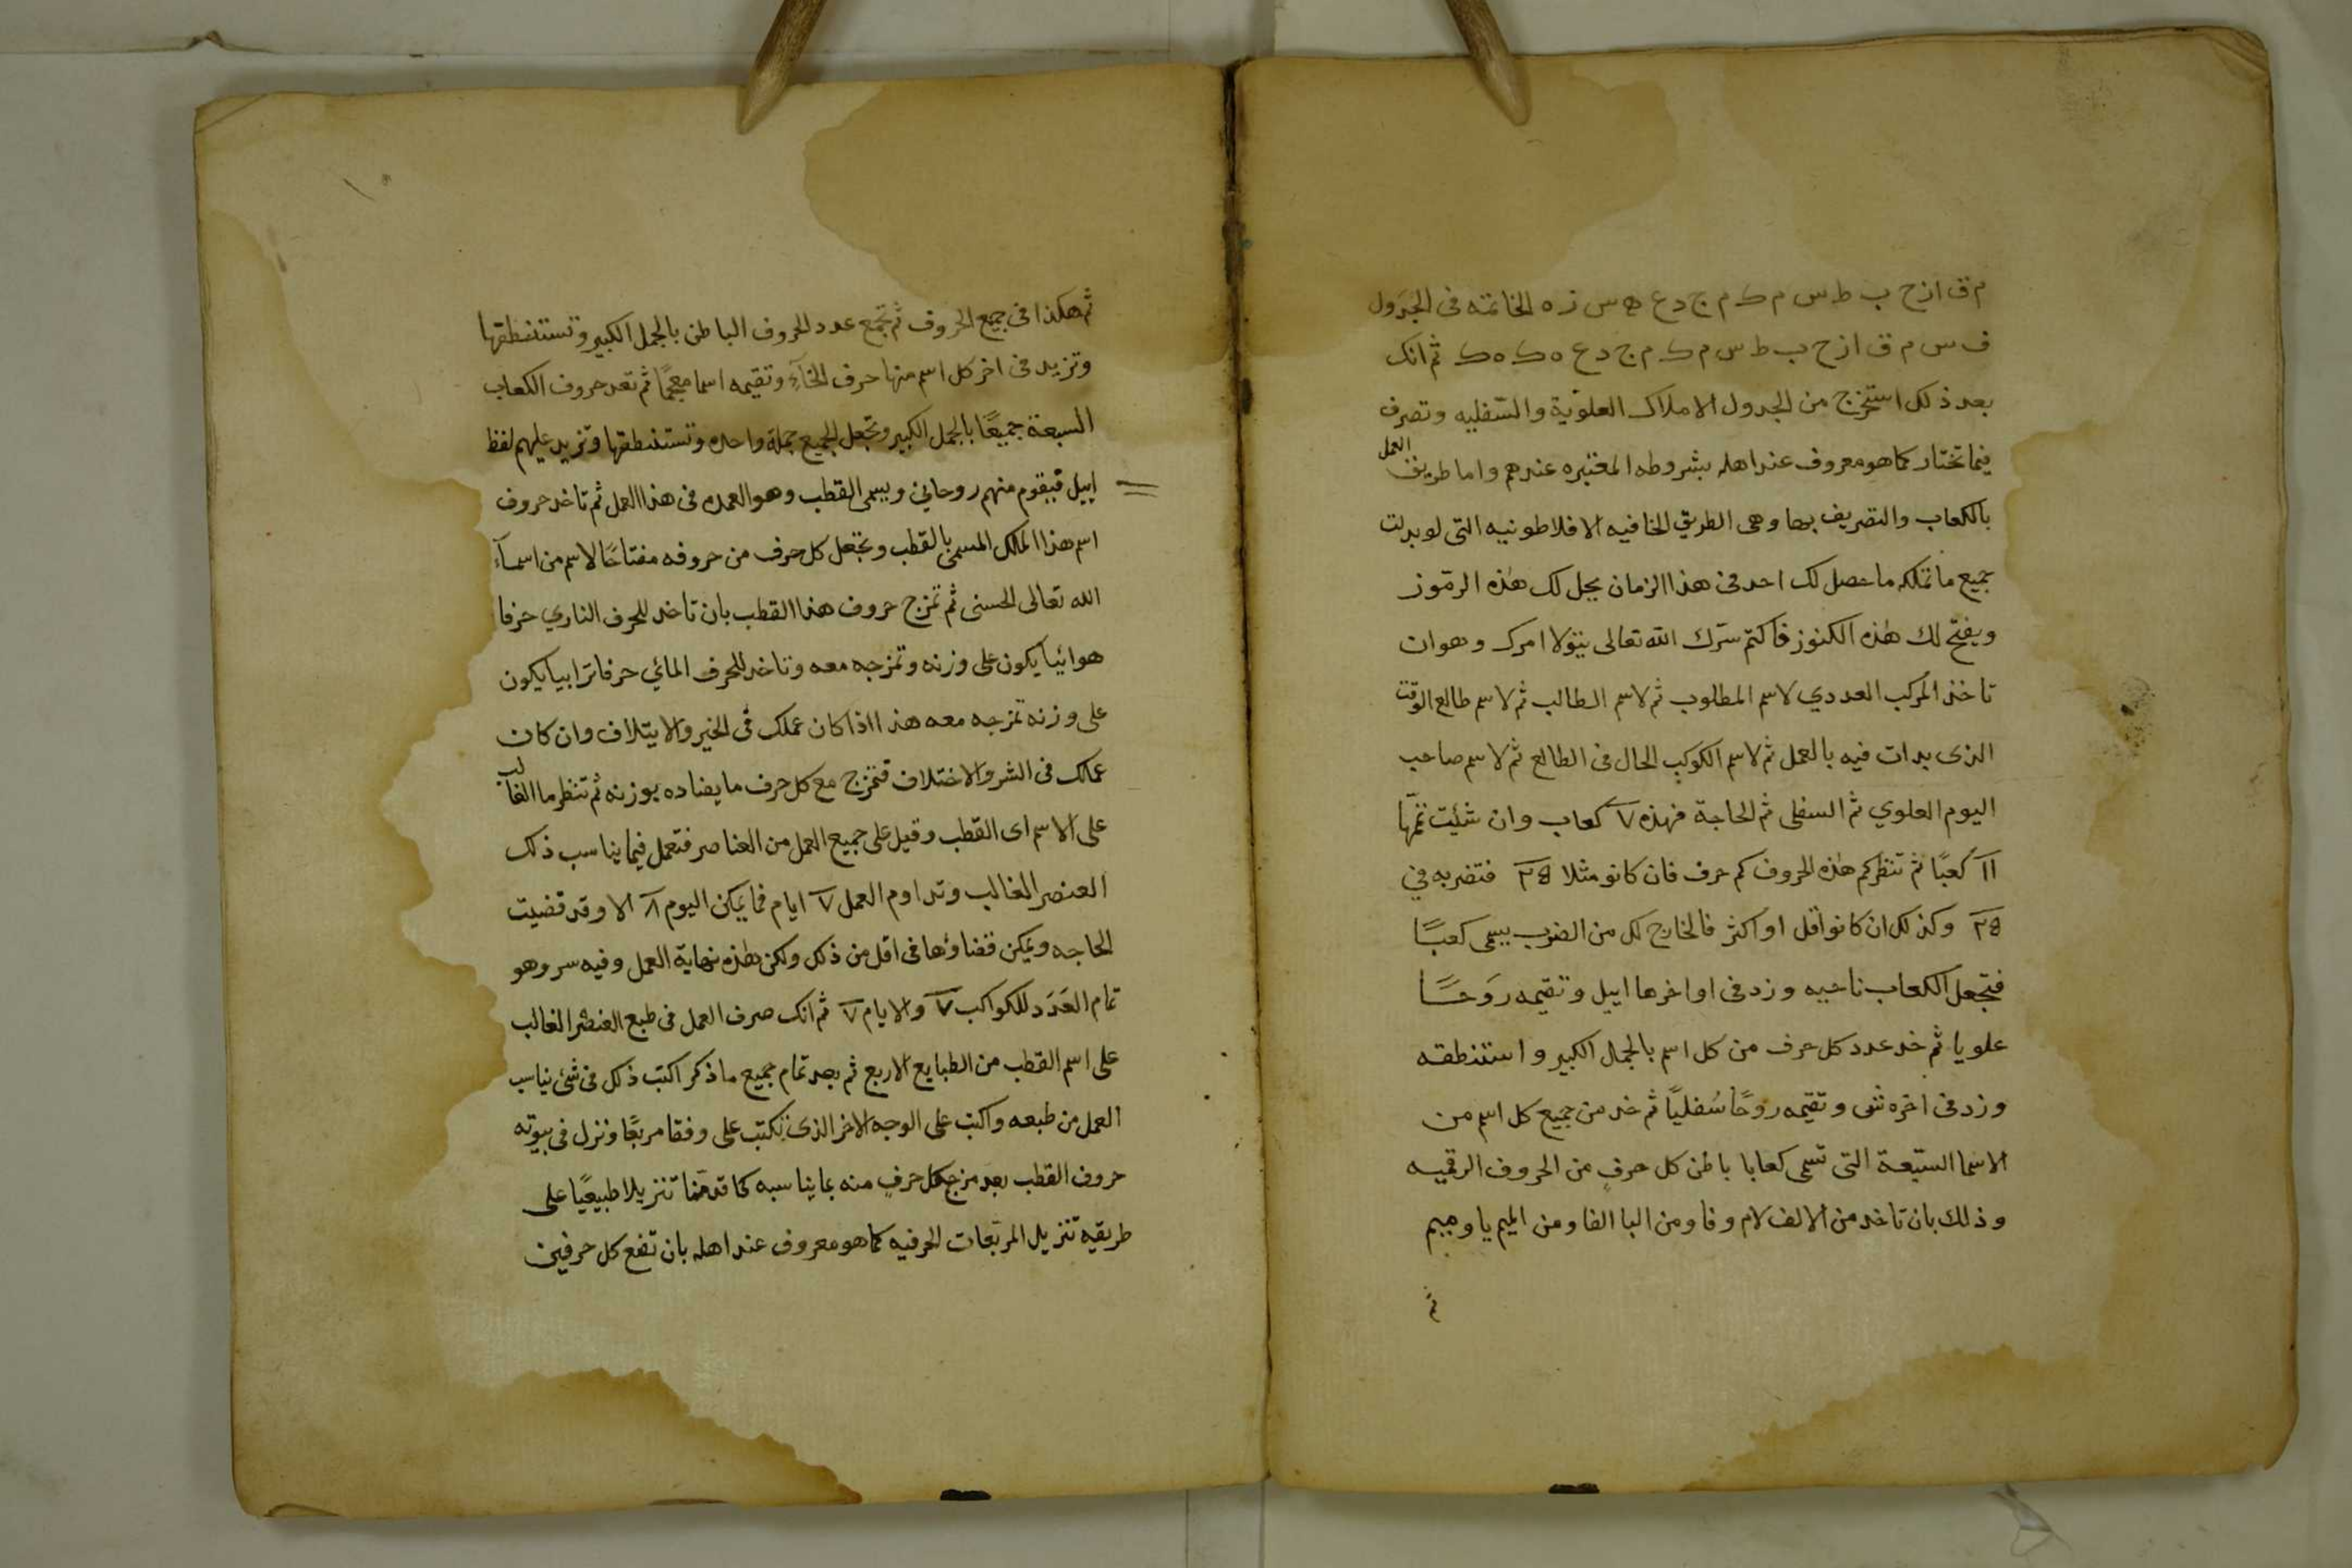 م ق ا ز ح ب ط س م ك م ج د ع ه س ز ه الخاتمه فى الجدول
ف س م ق ا ز ح ب ط س م ك م ج د ع ه ك ه ك ثم انك
بعد ذلك استخرج من الجدول الاملاك العلوية والسفليه وتصرف
فيما تختار كما هو معروف عند اهله بشروطه المعتبره عندهم واما طريق العمل
بالكعاب والتصريف بها وهى الطريق الخافيه الافلاطونيه التى لو بدلت
جميع ما تملكه ما حصل لك احد فى هذا الزمان يحل لك هذه الرموز
ويفتح لك هذه الكنوز فاكتم سرك الله تعالى يتولا امرك وهو ان
تاخذ المركب العددي لاسم المطلوب ثم لاسم الطالب ثم لاسم طالع الوقت
الذى بدات فيه بالعمل ثم لاسم الكوكب الحال فى الطالع ثم لاسم صاحب
اليوم العلوي ثم السفلى ثم الحاجة فهذه ٧ كعاب وان شئت تتمها
١١ كعبًا ثم تنظر كم هذه الحروف كم حرف فان كانو مثلا ٢٥ فتضربه في
٢٥ وكذلك ان كانو اقل او اكثر فالخارج لك من الضرب يسمى كعبًا
فتجعل الكعاب ناحيه وزد فى اواخرها اييل وتقيمه روحًا
علويا ثم خد عدد كل حرف من كل اسم بالجمل الكبير واستنطقه
وزد فى اخره شى وتقيمه روحًا سُفليًا ثم خد من جميع كل اسم من
الاسما السبعة التى تسمى كعابا باطن كل حرفٍ من الحروف الرقميه
وذلك بان تاخد من الالف لام وفا ومن البا الفا ومن الميم يا وميم
ثم
ثم هكذا فى جميع الحروف ثم تجمع عدد الحروف الباطن بالجمل الكبير وتستنطقها
وتزيد فى اخر كل اسم منها حرف الخاء وتقيمه اسما معجمًا ثم تعد حروف الكعاب
السبعة جميعًا بالجمل الكبير وتجعل الجميع جملة واحده وتستنطقها وتزيد عليهم لفظ
اييل فيقوم منهم روحاني ويسمى القطب وهو العمده فى هذا العمل ثم تاخد حروف
اسم هذا المالك المسمى بالقطب وتجعل كل حرف من حروفه مفتاحًا لاسم من اسماء
الله تعالى الحسنى ثم تمزج حروف هذا القطب بان تاخد للحرف الناري حرفا
هوائيا يكون على وزنه وتمزجه معه وتاخد للحرف المائي حرفا ترابيا يكون
على وزنه تمزجه معه هذا اذا كان عملك فى الخير والايتلاف وان كان
عملك فى الشر والاختلاف فتمزج مع كل حرف ما يضاده بوزنه ثم تنظر ما الغالب
على الاسم اى القطب وقيل على جميع العمل من العناصر فتعمل فيما يناسب ذلك
العنصر الغالب وتداوم العمل ٧ ايام فما يمكن اليوم ٨ الا وقد قضيت
الحاجه ويمكن قضاوها فى اقل من ذلك ولكن هذه نهاية العمل وفيه سر وهو
تمام العدد للكواكب ٧ والايام ٧ ثم انك صرف العمل فى طبع العنصر الغالب
على اسم القطب من الطبايع الاربع ثم بعد تمام جميع ما ذكر اكتب ذلك فى شى يناسب
العمل من طبعه واكتب على الوجه الاخر الذى تكتب على وفقا مربعًا ونزل فى بيوته
حروف القطب بعد مزج كل حرفٍ منه بما يناسبه كما قدمنا تنزيلا طبيعيًا على
طريقه تنزيل المربعات الحرفيه كما هو معروف عند اهله بان تضع كل حرفين